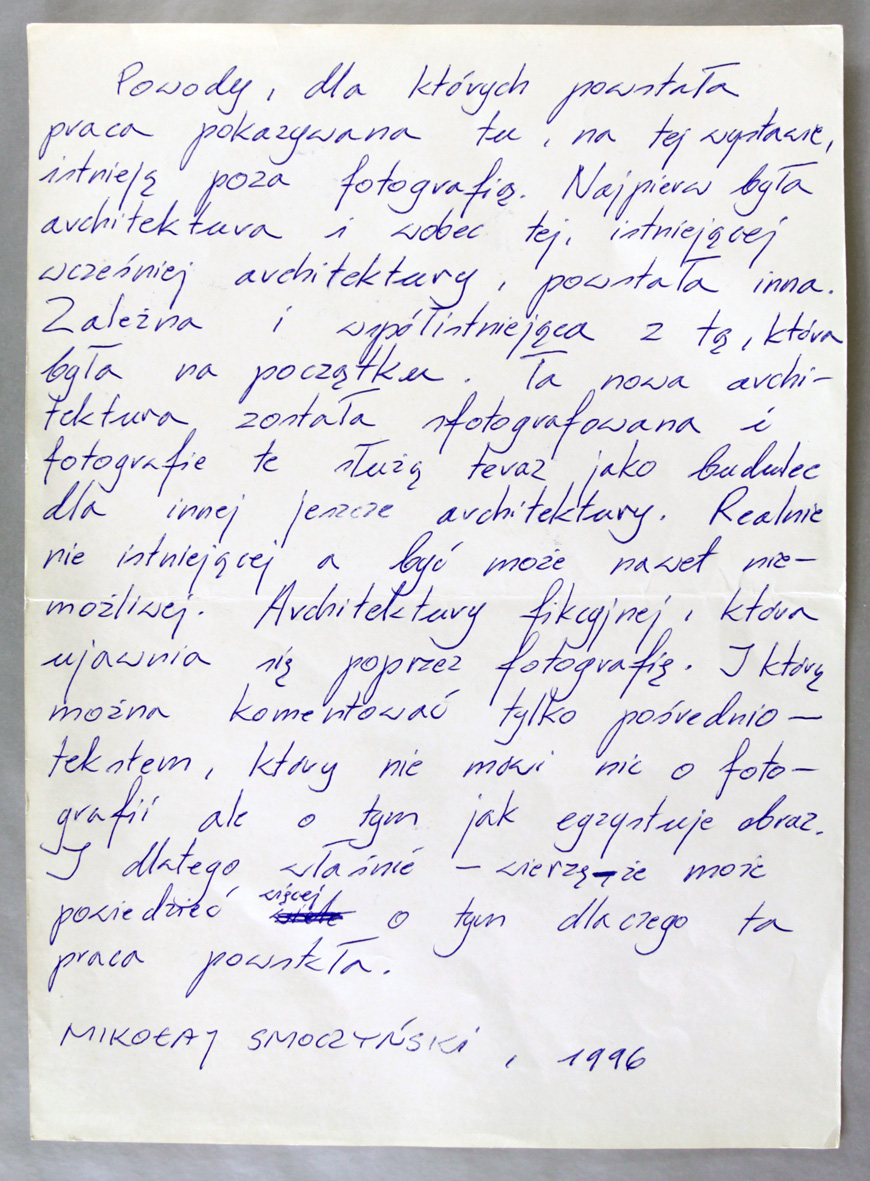 Powody, dla których powstała
praca pokazywana tu, na tej wystawie,
istnieją poza fotografią. Najpierw była
architektura i wobec tej, istniejącej
wcześniej architektury, powstała inna.
Zależna i współistniejąca z tą, która
była na początku. Ta nowa archi-
tektura została sfotografowana i
fotografie te służą teraz jako budulec
dla innej jeszcze architektury. Realnie
nie istniejącej a być może nawet nie-
możliwej. Architektury fikcyjnej, która
ujawnia się poprzez fotografię. I którą
można komentować tylko pośrednio -
tekstem, który nie mówi nic o foto-
grafii ale o tym jak egzystuje obraz.
I dlatego właśnie - wierzę - że może
powiedzieć więcej o tym dlaczego ta
praca powstała.
MIKOŁAJ SMOCZYŃSKI, 1996